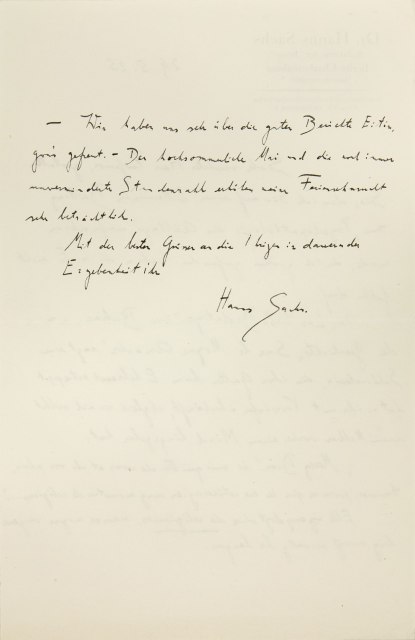 — Wir haben uns sehr über die guten Berichte Eitin-
gons gefreut. – Der hochsommerliche Mai und die noch immer
unverminderte Stundenzahl erhöhen meine Feriensehnsucht
sehr beträchtlich.
Mit den besten Grüssen an die Ihrigen in dauernder
Ergebenheit Ihr
Hanns Sachs.